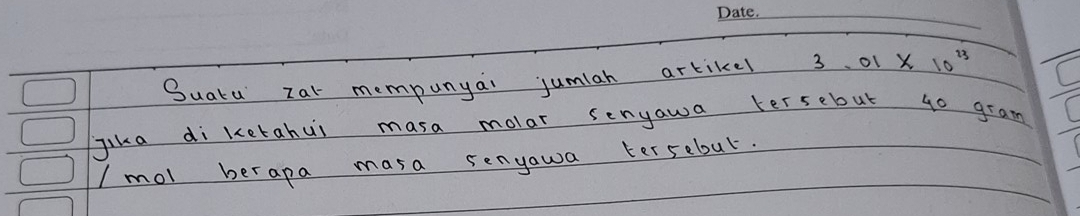 Date.
Suatu zat mempunyai jumlah artikel 3.01 X 10²³
jika di ketahui masa molar senyawa tersebut 40 gram
/ mol berapa masa senyawa tersebut.